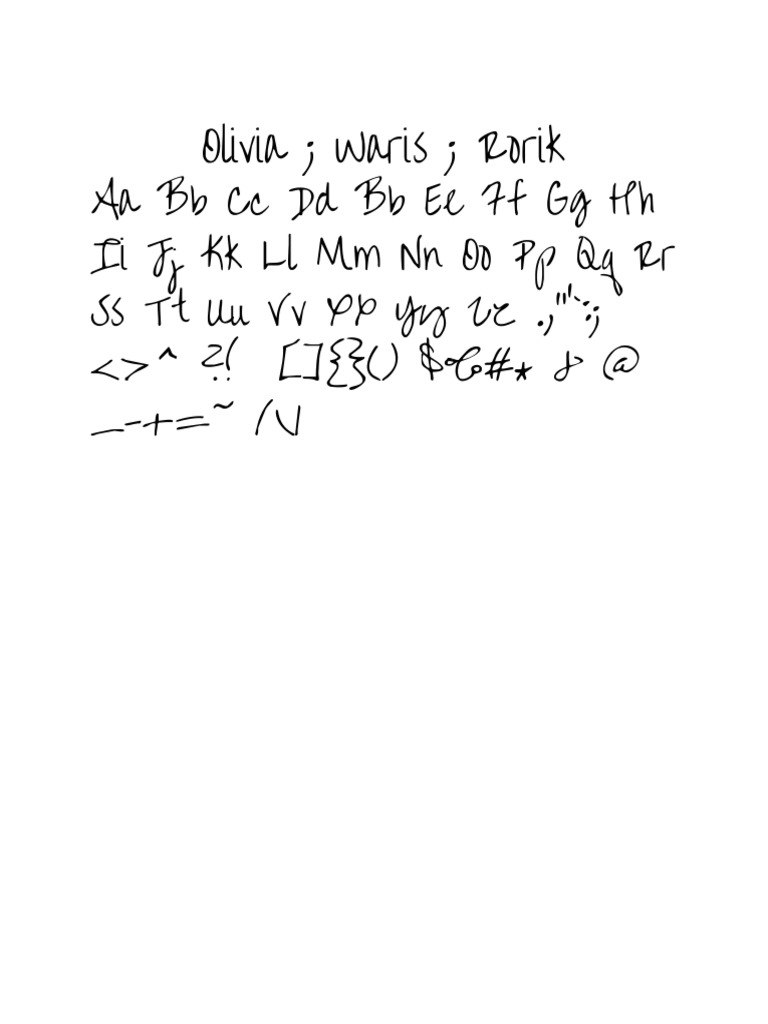 Olivia ; Waris ; Rorik
Aa Bb Cc Dd Bb Ee Ff Gg Hh
Ii Jj Kk Ll Mm Nn Oo Pp Qq Rr
Ss Tt Uu Vv Yy Zz .,
<>^ ?! []{}() $%#* & @
_-+=~ /\/